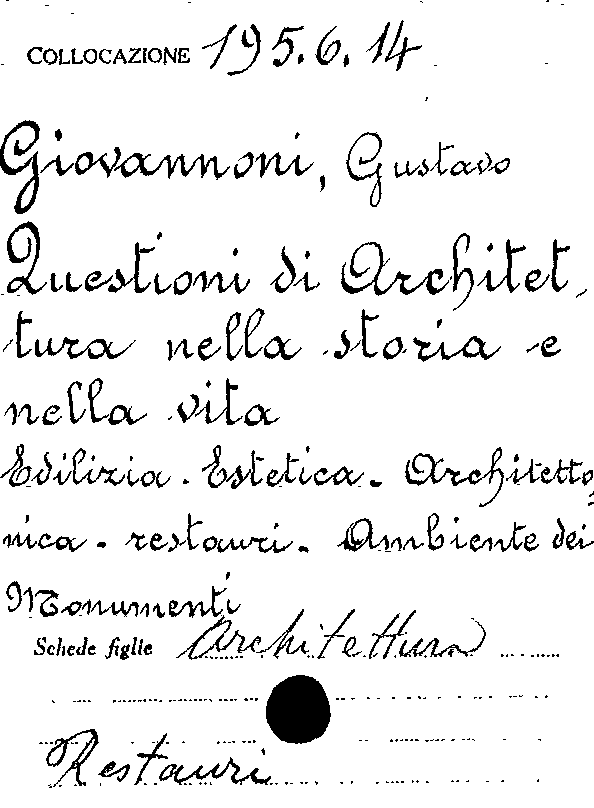 COLLOCAZIONE 195.6.14
Giovannoni, Gustavo
Questioni di Architet-
tura nella storia e
nella vita
Edilizia. Estetica - Architetto-
nica - restauri - Ambiente dei
Monumenti
Schede figlie Architettura
Restauri